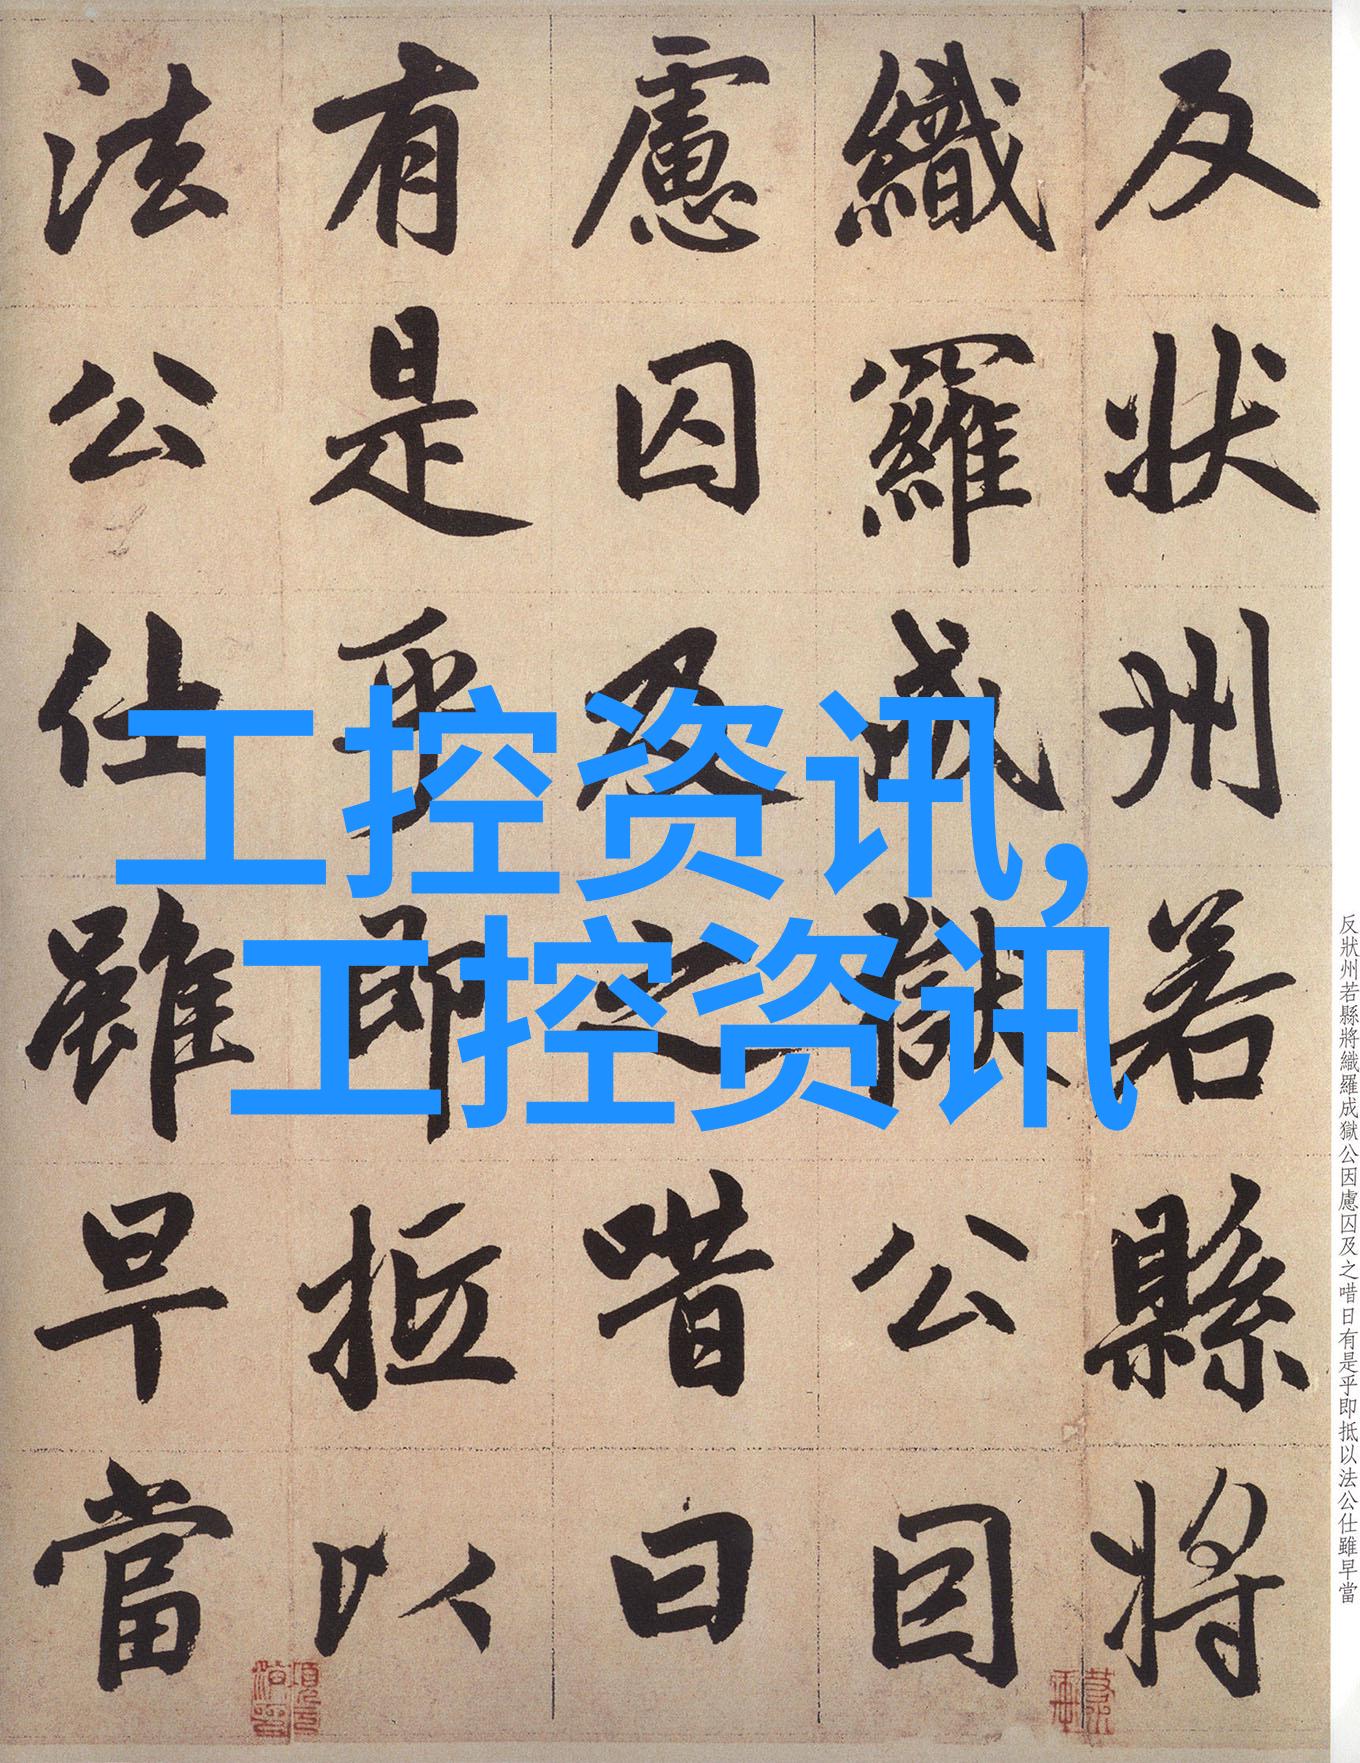 反狀州若縣將
織羅成獄公因
慮囚及之唶曰
有是乎即抵以
法公仕雖早當
工控资讯,
工控资讯
反狀州若縣將織羅成獄公因慮囚及之唶日有是乎即抵以法公仕雖早當